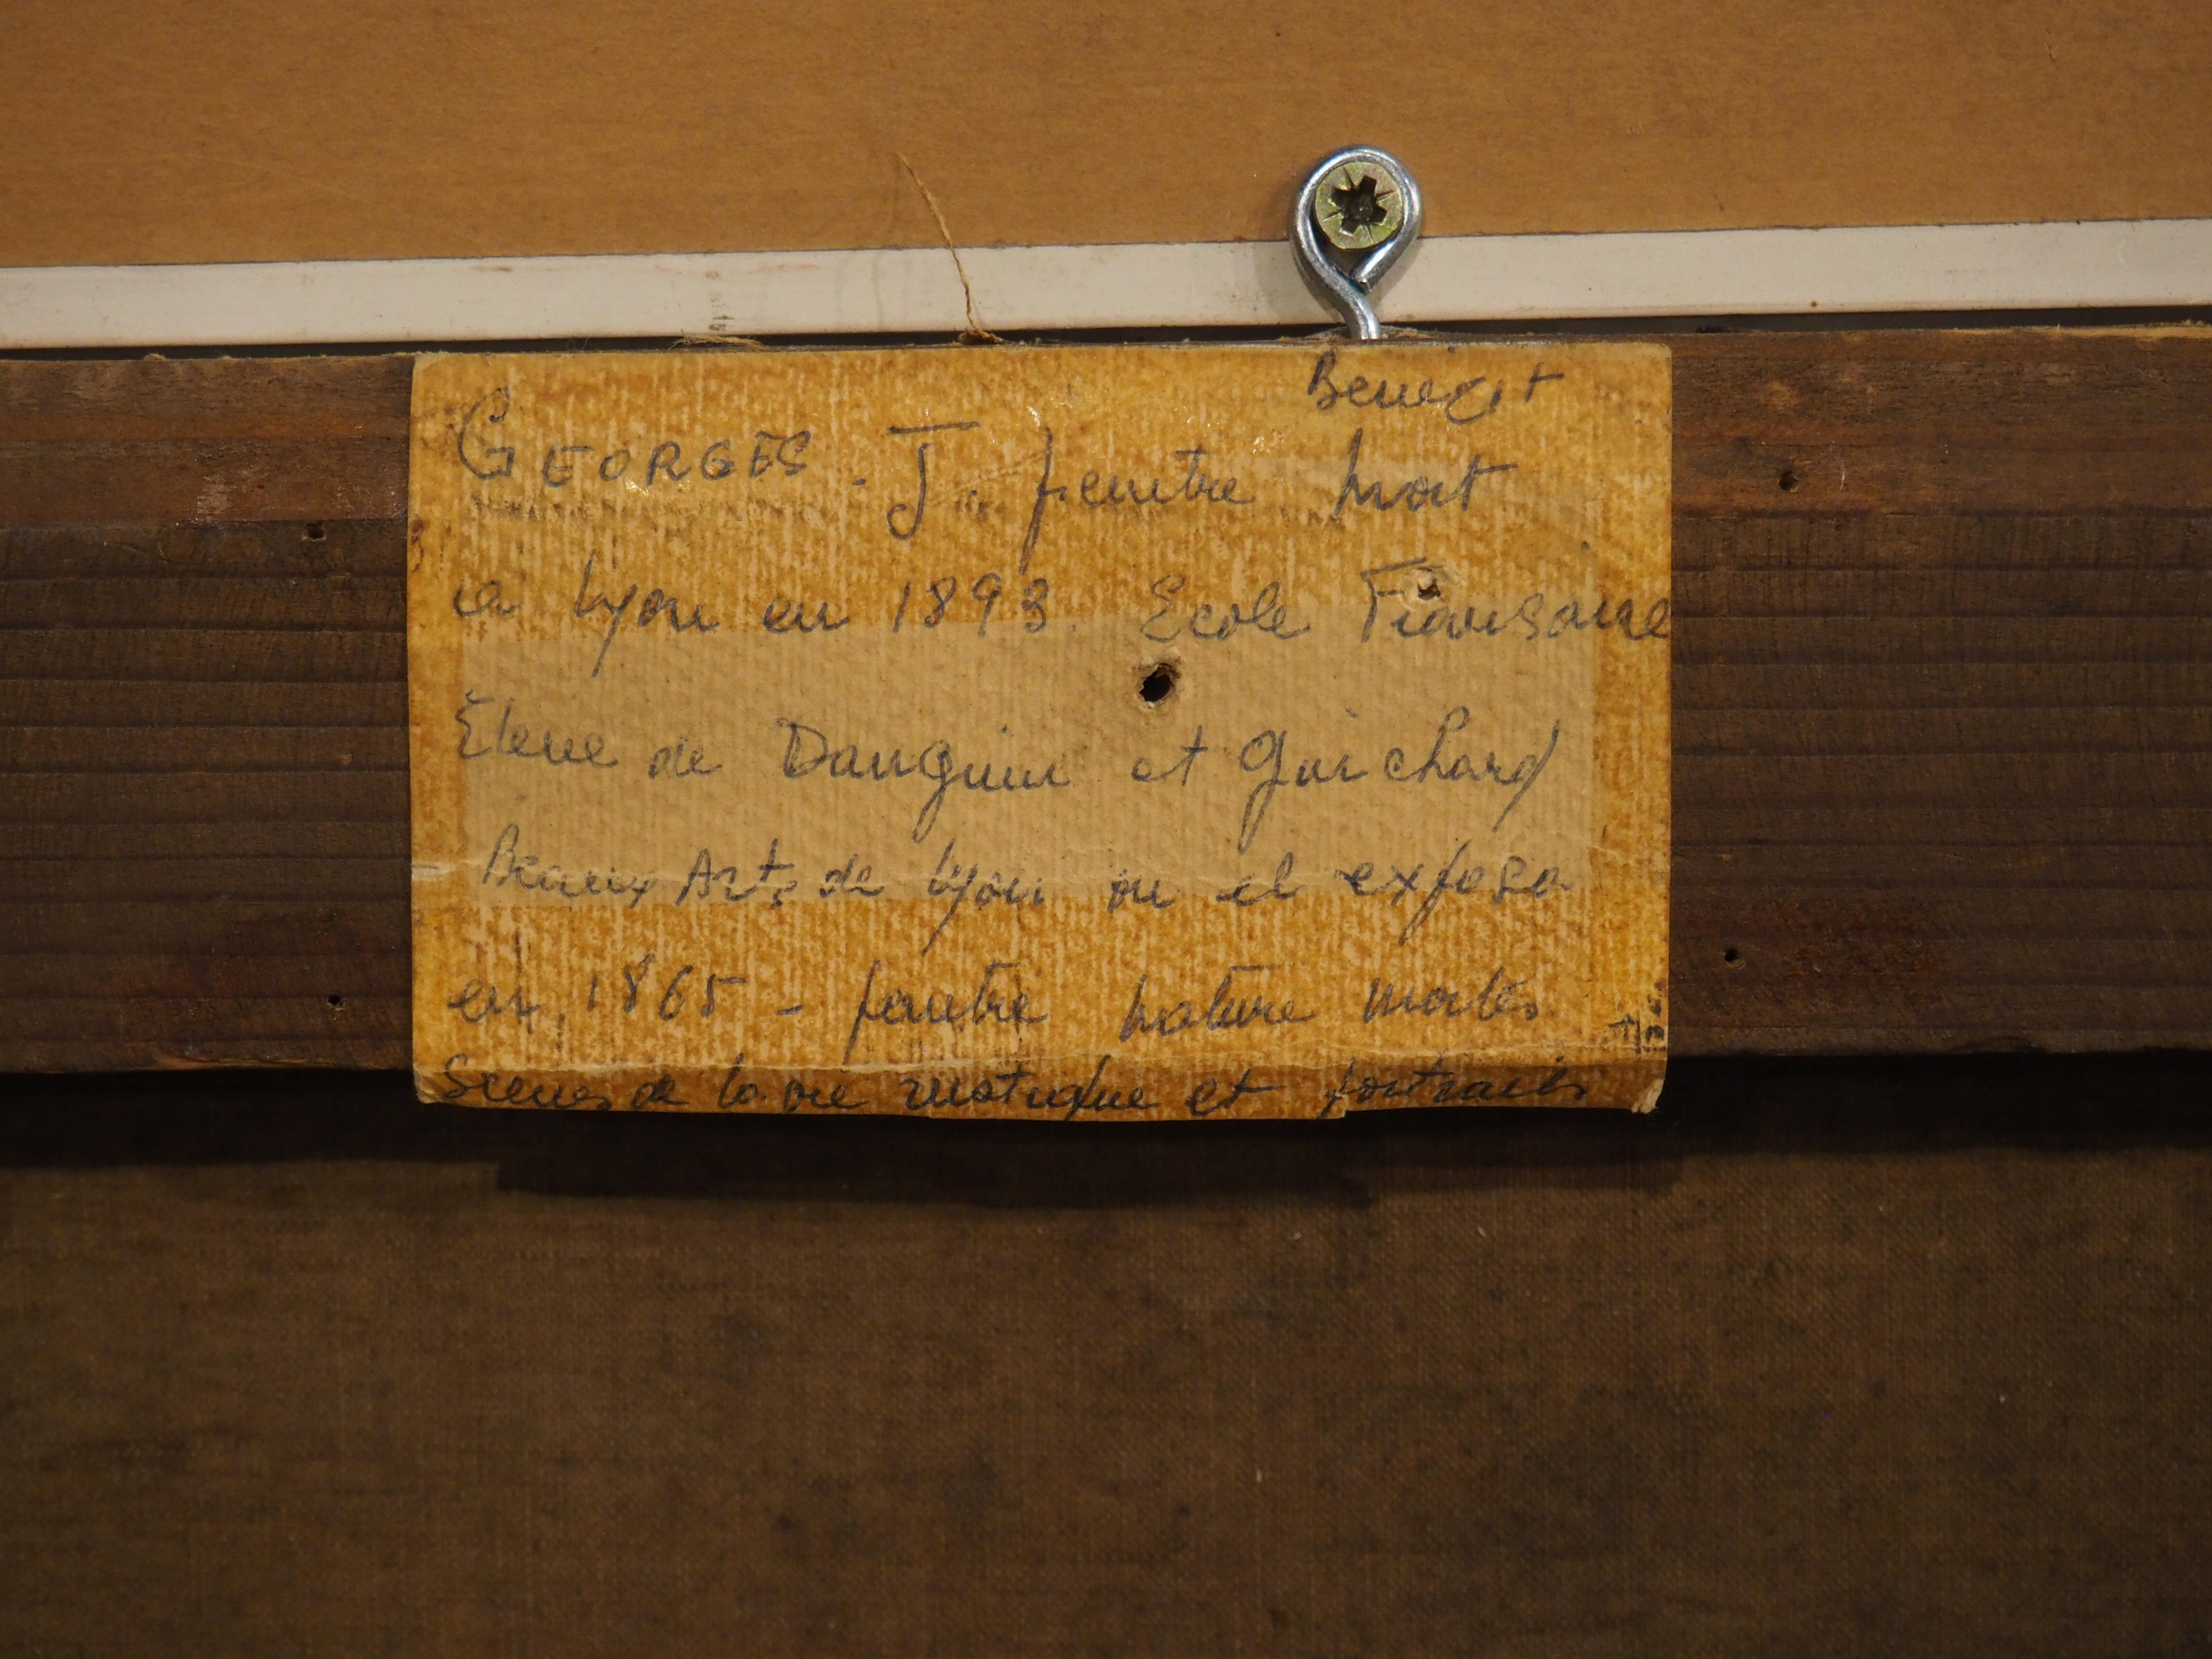 Benezit
GEORGES - J peintre mort
a Lyon en 1893. Ecole Francaise
Eleve de Danguin et Guichard
Beaux Arts de Lyon ou il exposa
en 1865 - peintre nature mortes
Scenes de la vie rustique et portraits